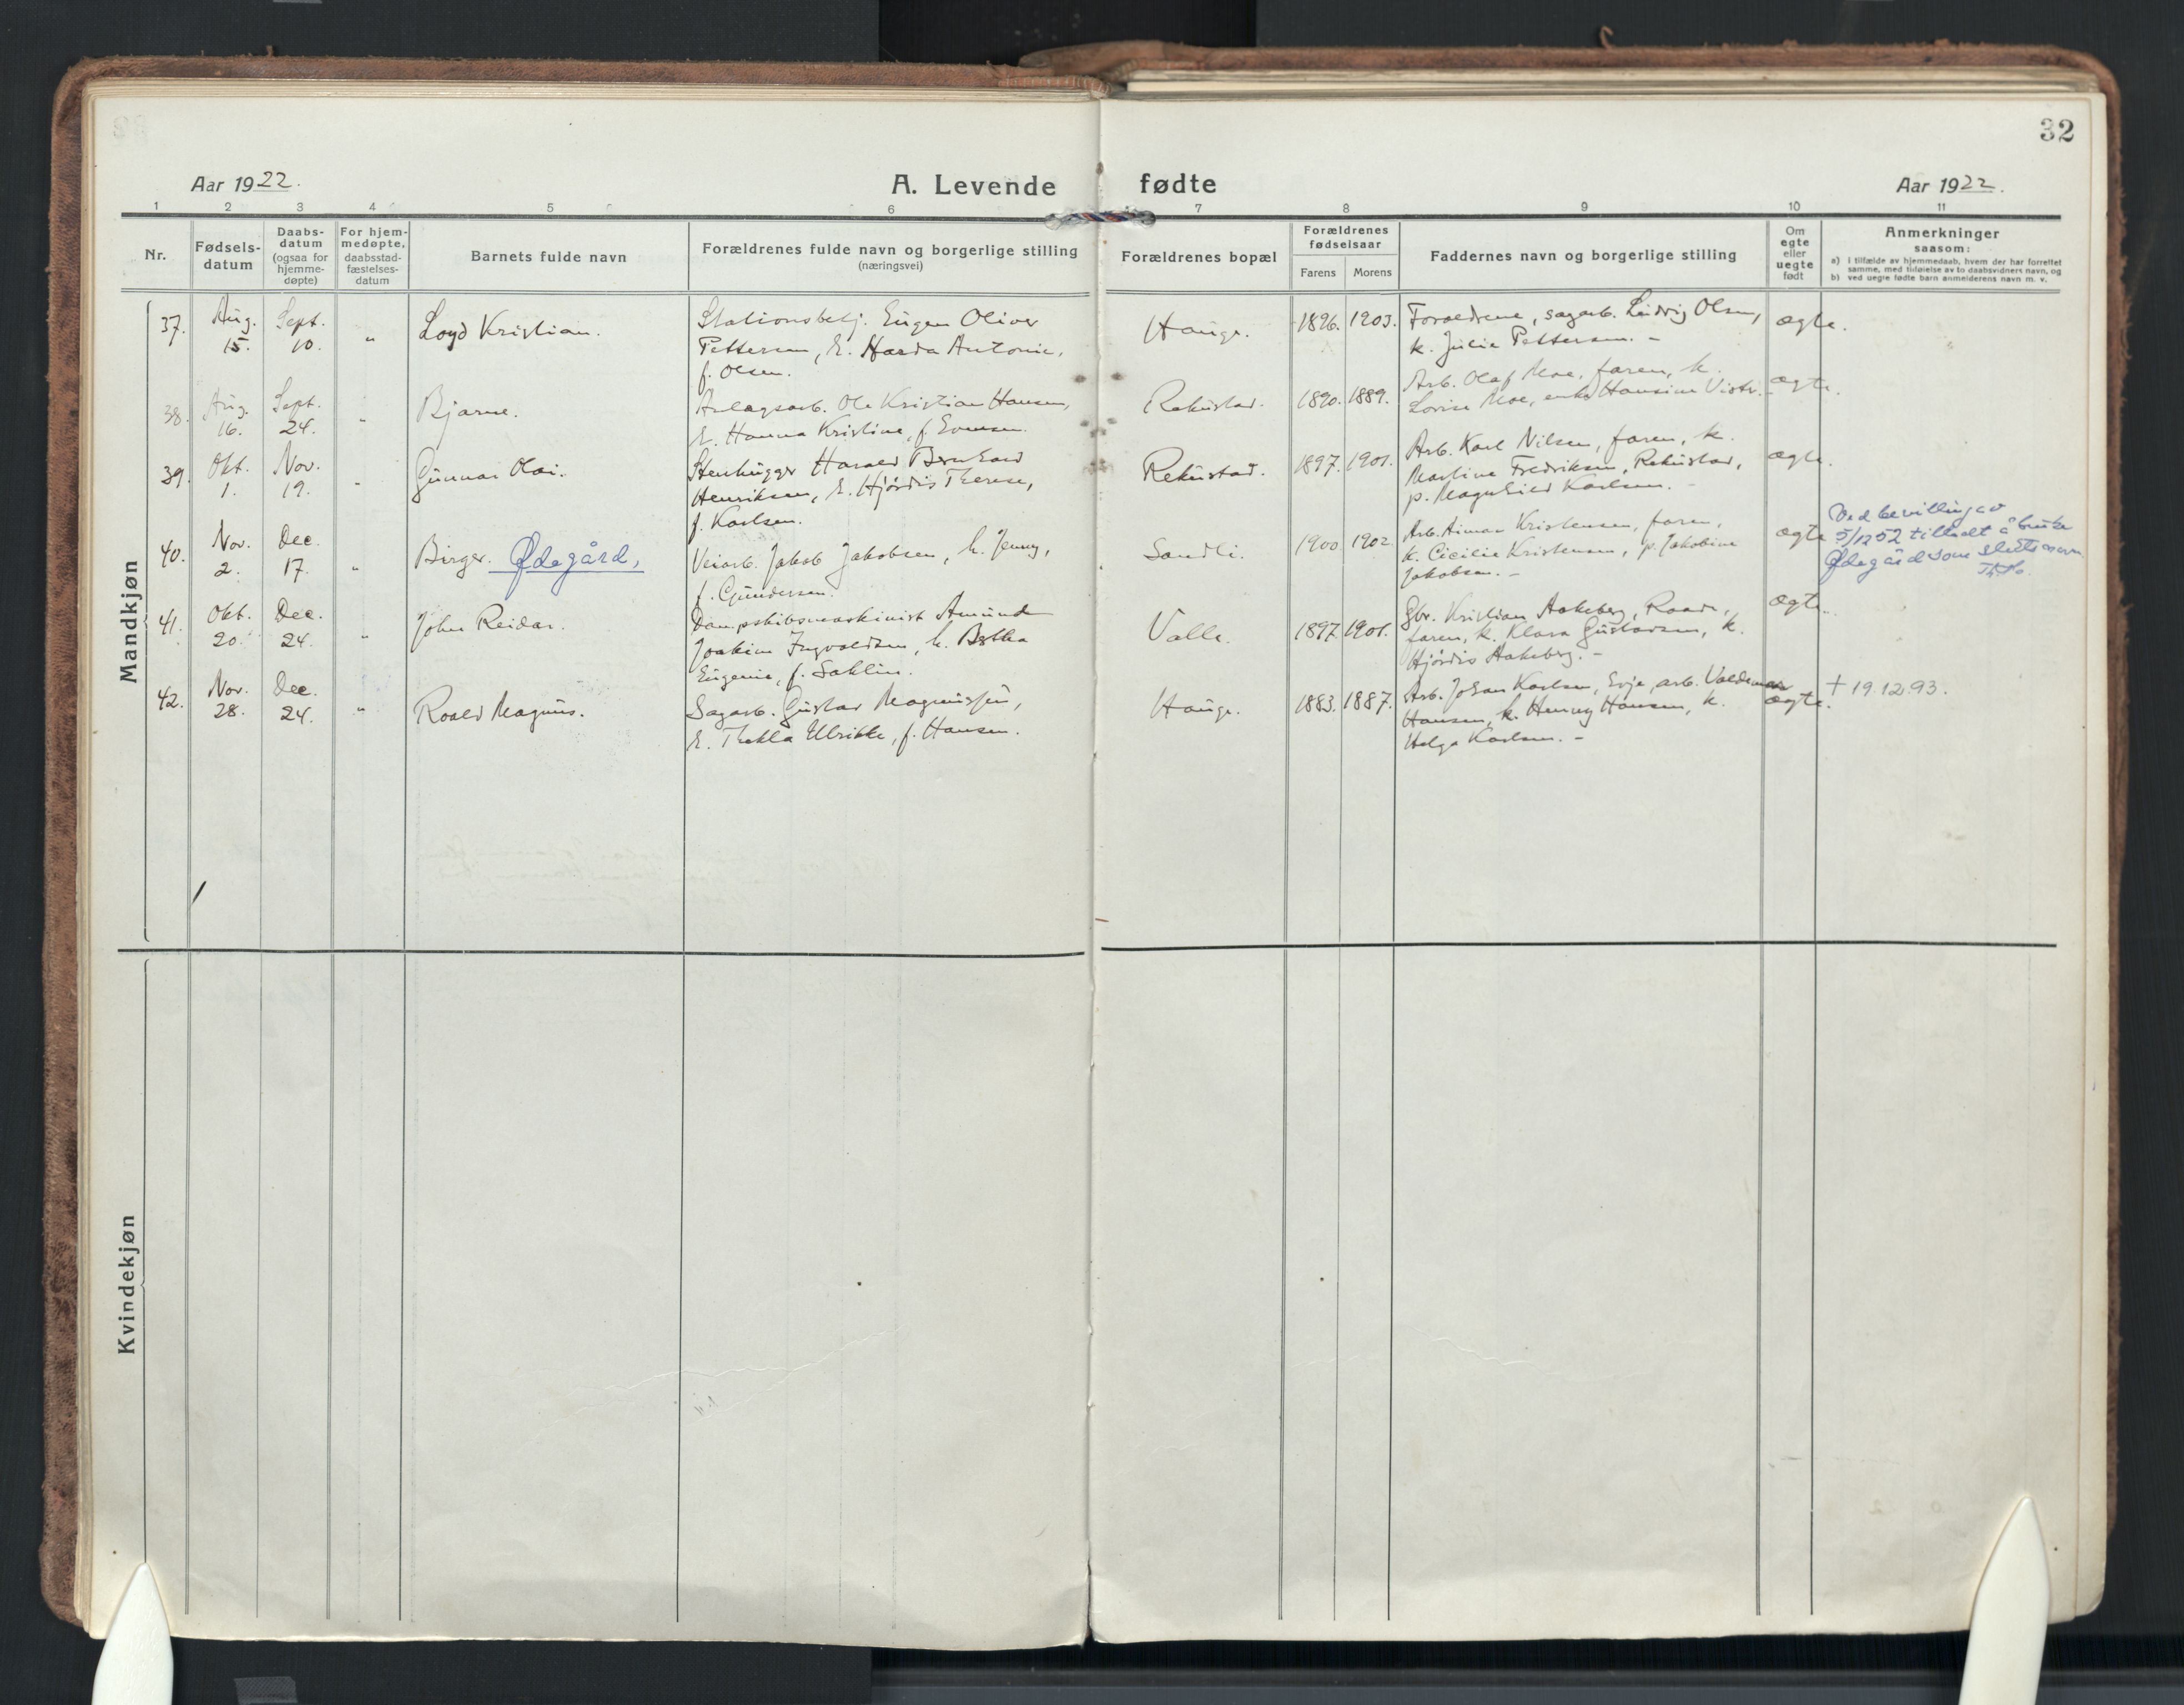 32
Aar 1922.
A. Levende fødte
Aar 1922.
1 2 3 4 5 6 7 8 9 10 11
Nr.
Fødsels-
datum
Daabs-
datum
(ogsaa for
hjemme-
døpte)
For hjem-
medøpte,
daabsstad-
fæstelses-
datum
Barnets fulde navn
Forældrenes fulde navn og borgerlige stilling
(næringsvei)
Forældrenes bopæl
Forældrenes
fødselsaar
Farens Morens
Faddernes navn og borgerlige stilling
Om
egte
eller
uegte
født
Anmerkninger
saasom:
a) i tilfælde av hjemmedaab, hvem der har forrettet
samme, med tilføielse av to daabsvidners navn, og
b) ved uegte fødte barn anmelderens navn m. v.
Mandkjøn
37. Aug. 15. Sept. 10. " Loyd Kristian.
Stationsbetj. Eugen Oliver
Pettersen, h. Harda Antonie,
f. Olsen.
Hauge. 1896. 1903.
Forældrene, sagarb. Ludvig Olsen,
k. Julie Pettersen. -
ægte.
38. Aug. 16. Sept. 24. " Bjarne.
Anlægsarb. Ole Kristian Hansen,
h. Hanna Kristine, f. Evensen.
Rekustad. 1890. 1889.
Arb. Olaf Moe, faren, k.
Lovise Moe, enke Hansine
ægte.
39. Okt. 1. Nov. 19. " Gunnar Olai.
Stenhugger Harald Bernhard
Henriksen, h. Hjørdis Therese,
f. Karlsen.
Rekustad. 1897. 1901.
Arb. Karl Nilsen, faren, k.
Martine Fredriksen, Rekustad,
p. Magnhild Karlsen. -
ægte.
40. Nov. 2. Dec. 17. " Birger. Ødegård,
Veiarb. Jakob Jakobsen, h. Jenny,
f. Gundersen.
Sandli. 1900 1902.
Arb. Kristensen, faren,
k. Cicilie Kristensen, p. Jakobine
Jakobsen. -
ægte
Ved bevilling av
5/12 52 tilladt å bruke
Ødegård som slektsnavn
41. Okt. 20. Dec. 24. " John Reidar.
Dampskibsmaskinist Amund
Joakim Ingvaldsen, h. Bertha
Eugenie, f. Sahlin.
Valle. 1897. 1901.
Gbr. Kristian Aakeberg, Raade,
faren, k. Klara Gustavsen, k.
Hjørdis Aakeberg. -
ægte.
42. Nov. 28. Dec. 24. " Roald Magnus.
Sagarb. Gustav Magnussen,
h. Thekla Ulrikke, f. Hansen.
Hauge. 1883. 1887.
Arb. Johan Karlsen, Evje, arb. Valdemar
Hansen, k. Henny Hansen, k.
Helga Karlsen. -
ægte.
† 19.12.93.
Kvindekjøn